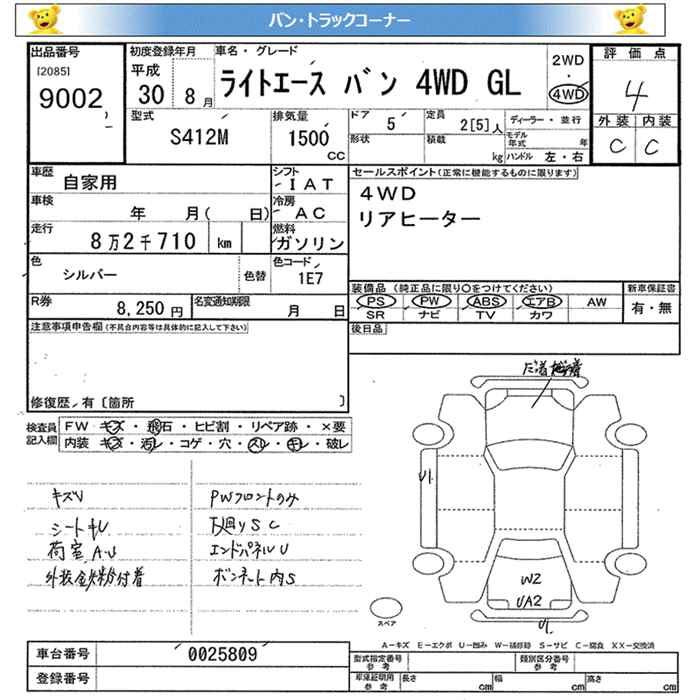 バン・トラックコーナー
出品番号
[2085]
9002
初度登録年月
平成
30 8月
車名・グレード
ライトエース バン 4WD GL
2WD
・
4WD
評価点
4
外装 内装
C C
型式
S412M
排気量
1500
CC
ドア
5
定員
2[5]人
形状
積載
kg
ディーラー・並行
モデル年式 年
ハンドル 左・右
車歴
自家用
シフト
IAT
車検
年 月( 日)
冷房
AC
走行
8万2千710 km
燃料
ガソリン
色
シルバー
色替
色コード
1E7
R券
8,250円
名変通知期限
月 日
セールスポイント(正常に機能するものに限ります)
4WD
リアヒーター
装備品 (純正品に限り○をつけてください)
PS PW ABS エアB AW
SR ナビ TV カワ
新車保証書
有・無
後日品
注意事項申告欄(不具合内容等は具体的に記入して下さい)
修復歴・有〔箇所 〕
検査員
記入欄
FW キズ・飛石・ヒビ割・リペア跡・×要
内装 キズ・汚レ・コゲ・穴・スレ・キレ・破レ
キズU
荷室 A.U
PWフロントのみ
下廻りSC
エンドパネルU
ボンネット内S
U1
W2
UA2
U1
スペア
A-キズ E-エクボ U-凹み W-補修跡 S-サビ C-腐食 XX-交換済
車台番号
0025809
登録番号
型式指定番号
参考
類別区分番号
参考
車庫証明用
参考
長さ cm
幅 cm
高さ cm